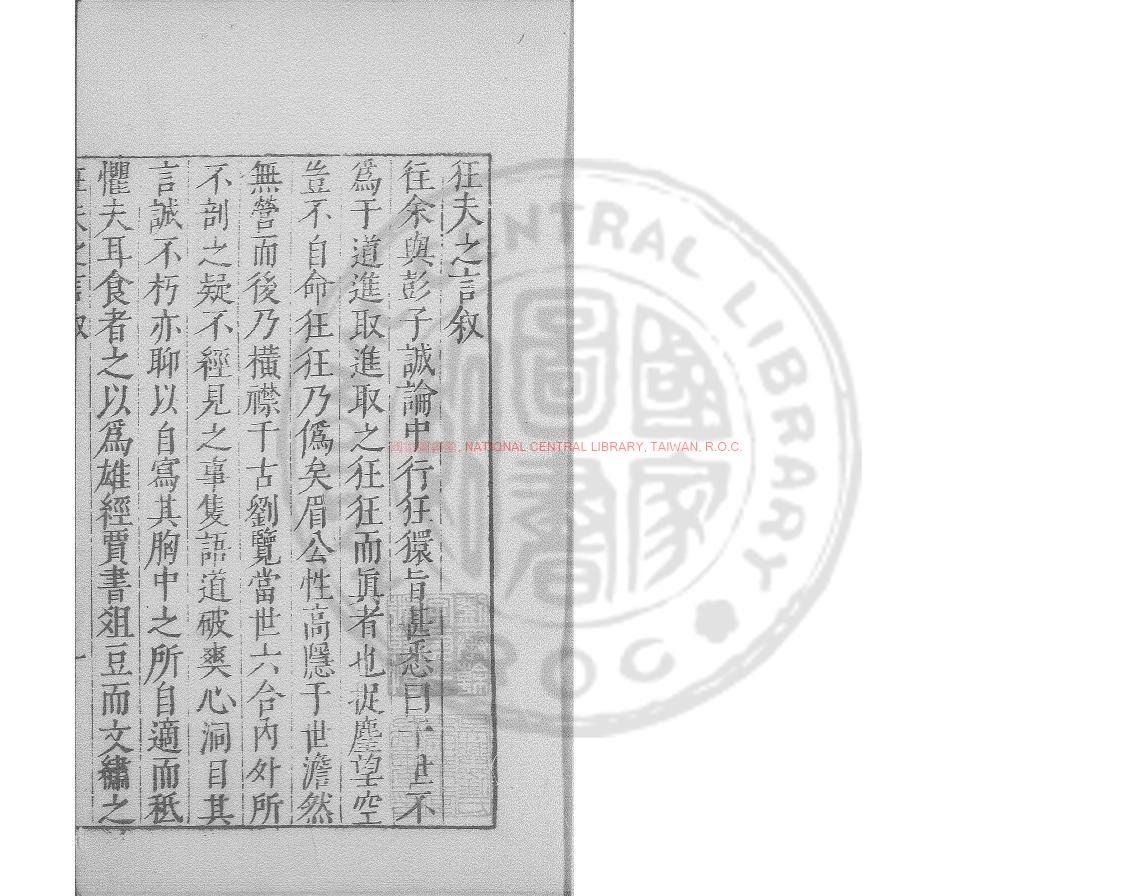 狂夫之言叙
往余與彭子誠論中行狂獧旨甚悉曰于世不
爲于道進取進取之狂狂而眞者也捉麈望空
豈不自命狂狂乃僞矣眉公性高隱于世澹然
無營而後乃橫襟千古劉覽當世六合內外所
不剖之疑不經見之事隻語道破爽心洞目其
言誠不朽亦聊以自寫其胸中之所自適而秪
懼夫耳食者之以爲雄經賈書爼豆而文繡之
狂夫之言叙
一
NATIONAL CENTRAL LIBRARY, TAIWAN, R.O.C.
CENTRAL LIBRARY
R O C
國家圖書館